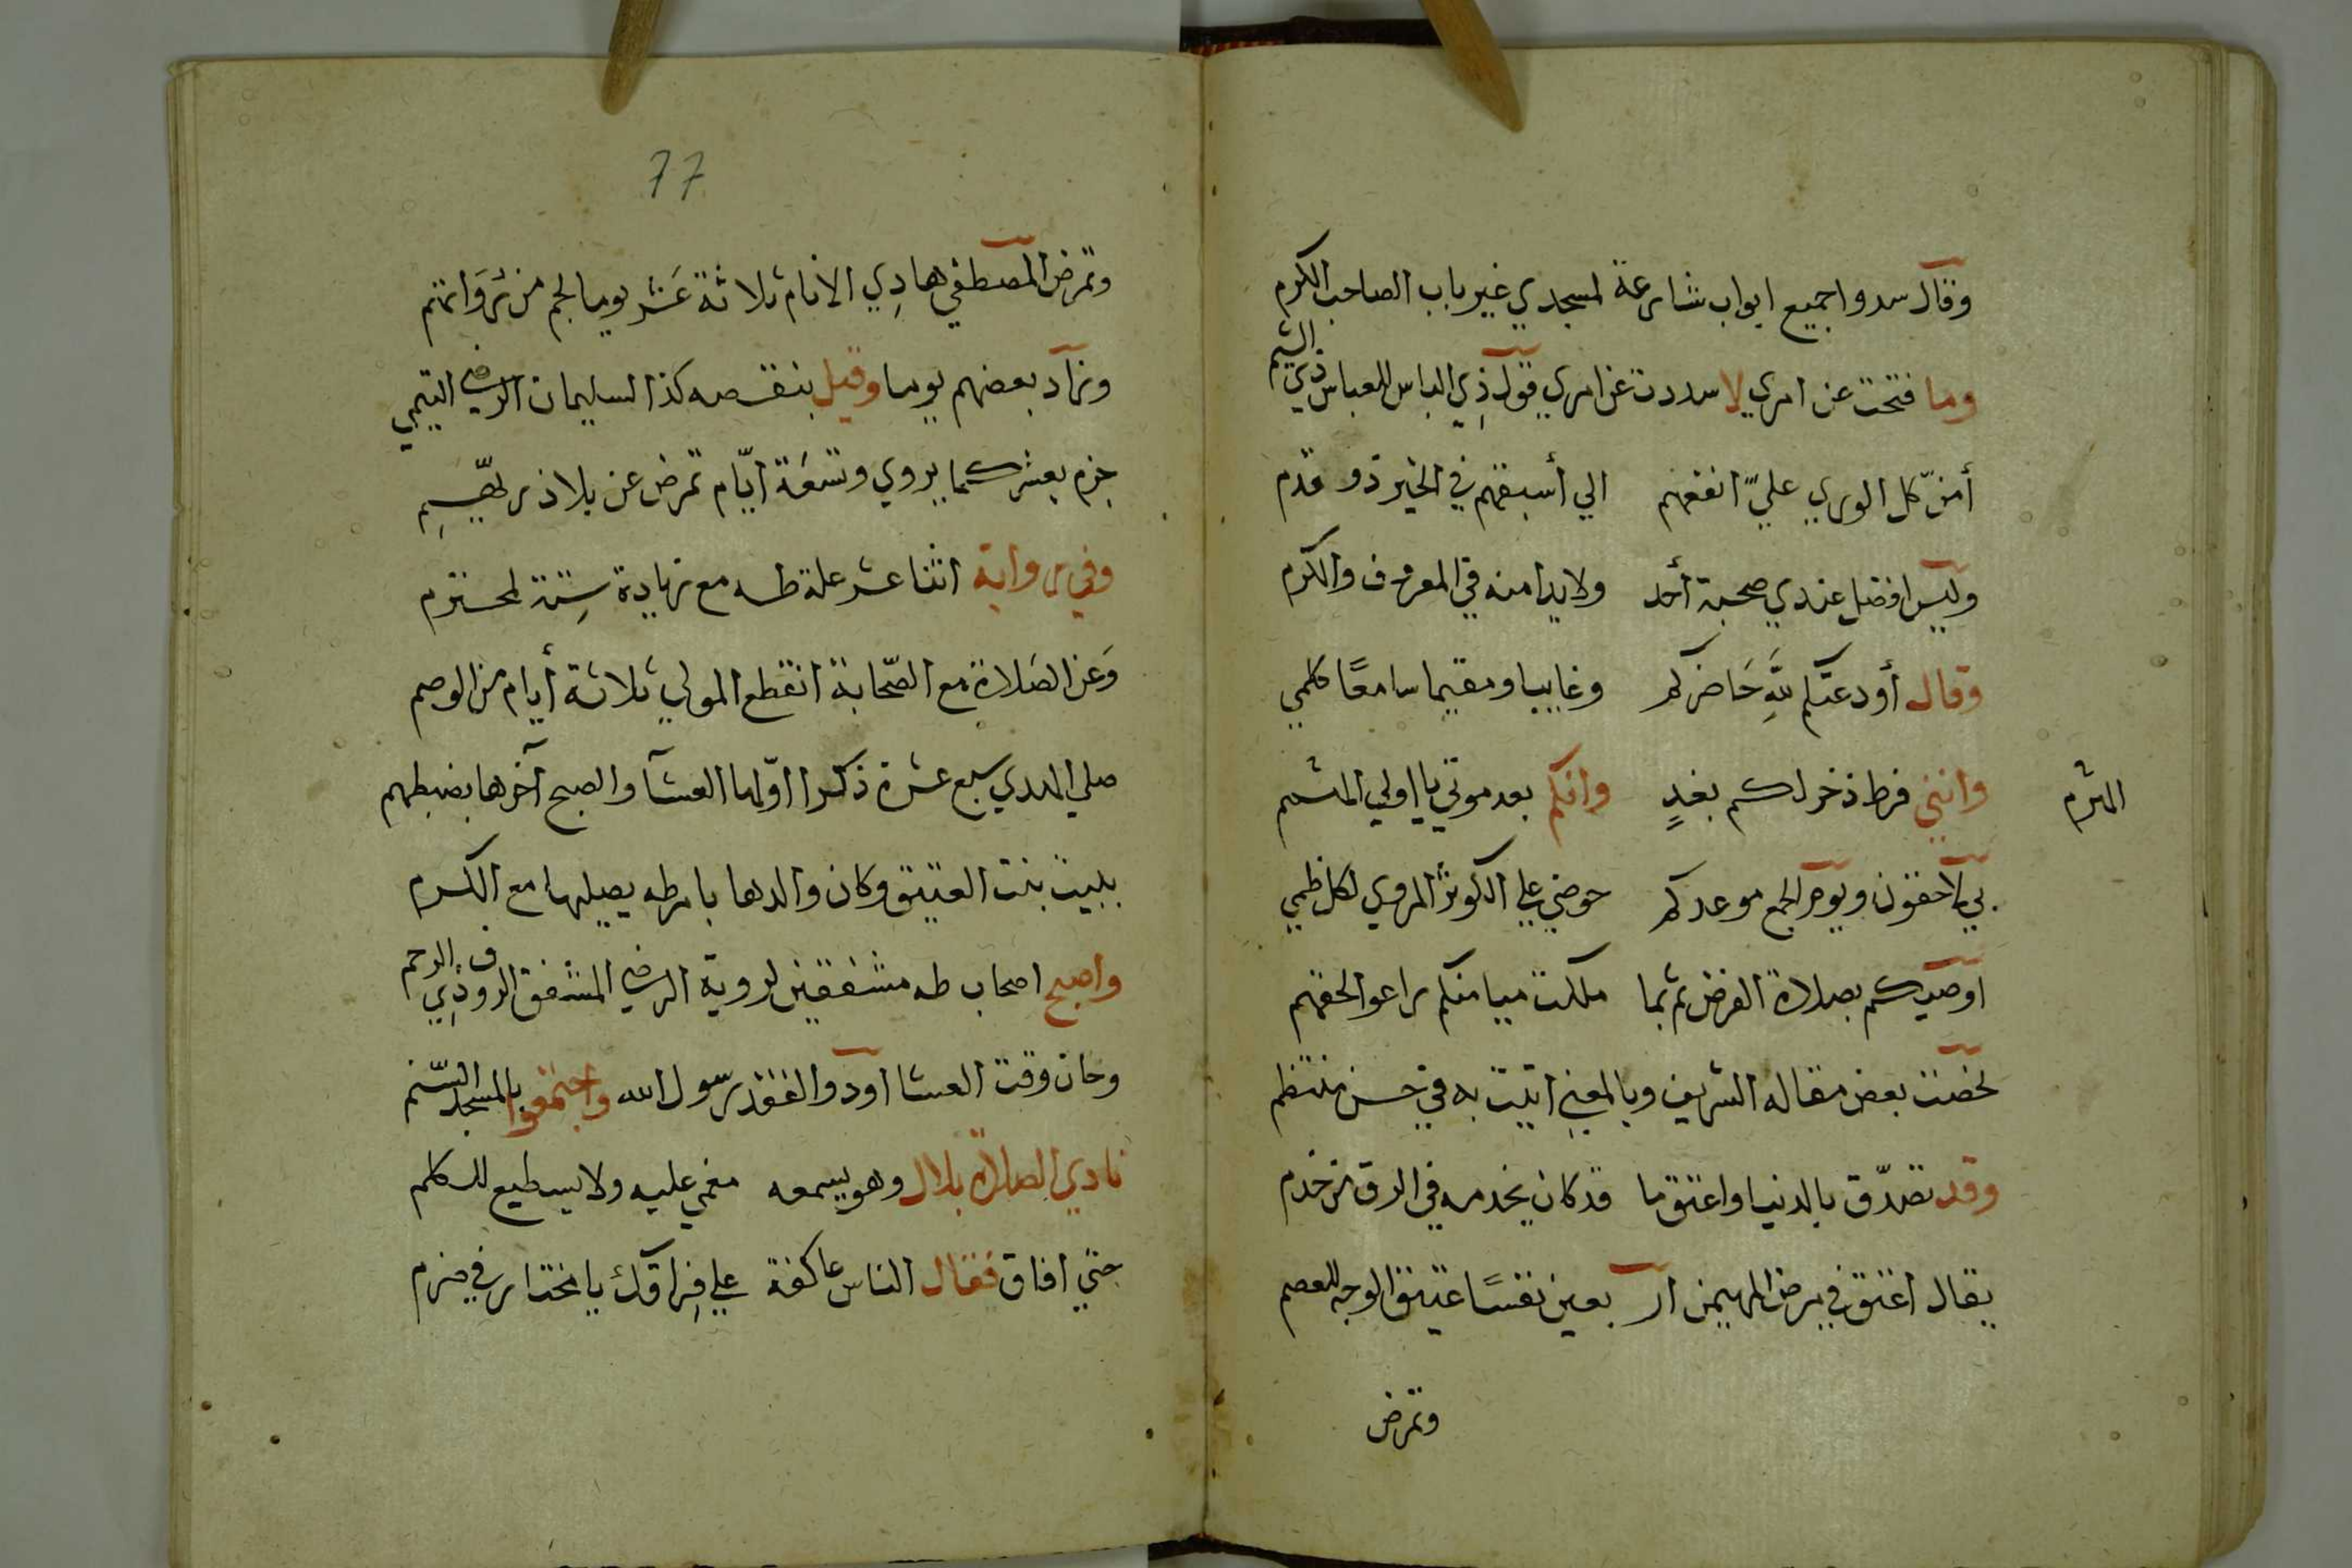 وقال سدوا جميع ابواب شارعة لمسجدي غير باب الصاحب الكرم
وما فتحت عن امري لا سددت عن امري قول ذي الباس للعباس ذي الشيم
أمنّ كل الوري عليّ انفعهم الي أسبقهم في الخير ذو قدم
وليس افضل عندي صحبة أحد ولا يدا منه في المعروف والكرم
وقال أودعتكم للَّهِ حَاضركم وغايبا ومقيما سامعًا كلمي
وانني فرط ذخر لكم بغدٍ وانكم بعد موتي يا اولي
المثرم
بي لاحقون ويوم الجمع موعدكم حوضي علي الكوثر المروي لكل ظمي
اوصيكم بصلاة الفرض ثم بما ملكت ميامنكم راعوا لحقهم
لخصت بعض مقاله الشريف وبالمعني اتيت به في حسن منتظم
وقد تصدّق بالدنيا واعتق ما قد كان يخدمه في الرق من خدم
يقال اعتق في مرض المهيمن ار بعين نفسًا عتيق الوجه للعصم
وتمرض
77
وتمرض المصطفي هادِي الانام ثلاثة عَشر يوما لجم من رُوَاتهم
وزاد بعضهم يوما وقيل بنقصه كذا لسليمان الرضي التيمي
جزم بعشر كما يروي وتسعَة ايّام تمرض عن بلاذر
وفي رواية اثنا عشر علة طه مع زيادة سِتة لمحتزم
وَعن الصَلاة مع الصّحابة انقطع المولي ثلاثة أيام من الوصم
صلي المهدي سبع عشرة ذكرا اوّلها العشآ والصبح آخرها بضبطهم
ببيت بنت العتيق وكان والدها بامر طه يصليها مع الكرم
واصبح اصحاب طه مشفقين لروية الرضي المشفق الروف ذِي الرحم
وحان وقت العشا اودوا لفقد رسول الله واجتمعوا بالمسجد السّنم
نادي الصلاة بلال وهو يسمعه مغمي عليه ولا يسطيع للكلم
حتي افاق فقال الناس عاكفة علي فِراقك يا مختار في ضرم